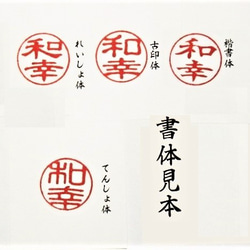 和幸
楷書体
和幸
古印体
和幸
れいしょ体
和幸
てんしょ体
書体見本